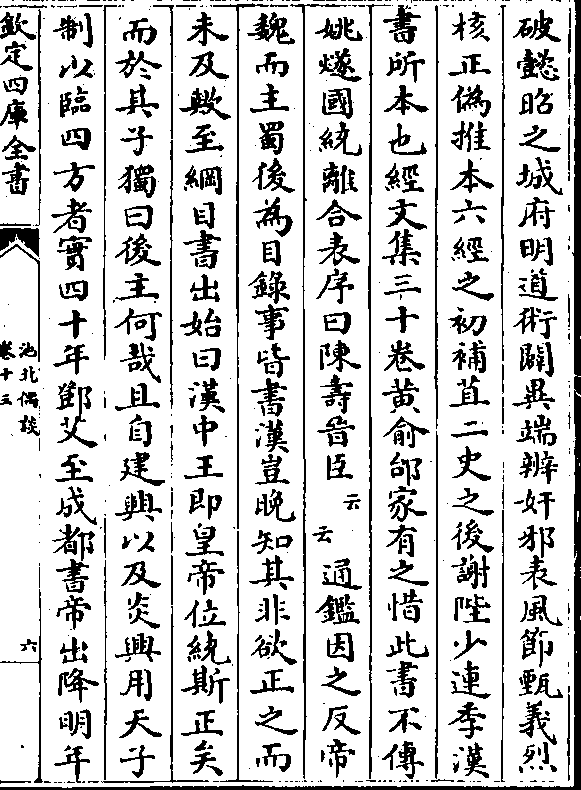 破懿昭之城府明道術闢異端辨奸邪表風節甄義烈
核正僞推本六經之初補苴二史之後謝陛少連季漢
書所本也經文集三十卷黄俞邰家有之惜此書不傳
姚燧國統離合表序曰陳壽晉臣云云通鑑因之反帝
魏而主蜀後為目錄事皆書漢豈晚知其非欲正之而
未及歟至綱目書出始曰漢中王即皇帝位統斯正矣
而於其子獨曰後主何哉且自建興以及炎興用天子
制以臨四方者實四十年鄧艾至成都書帝出降明年
欽定四庫全書
池北偶談
卷十三
六